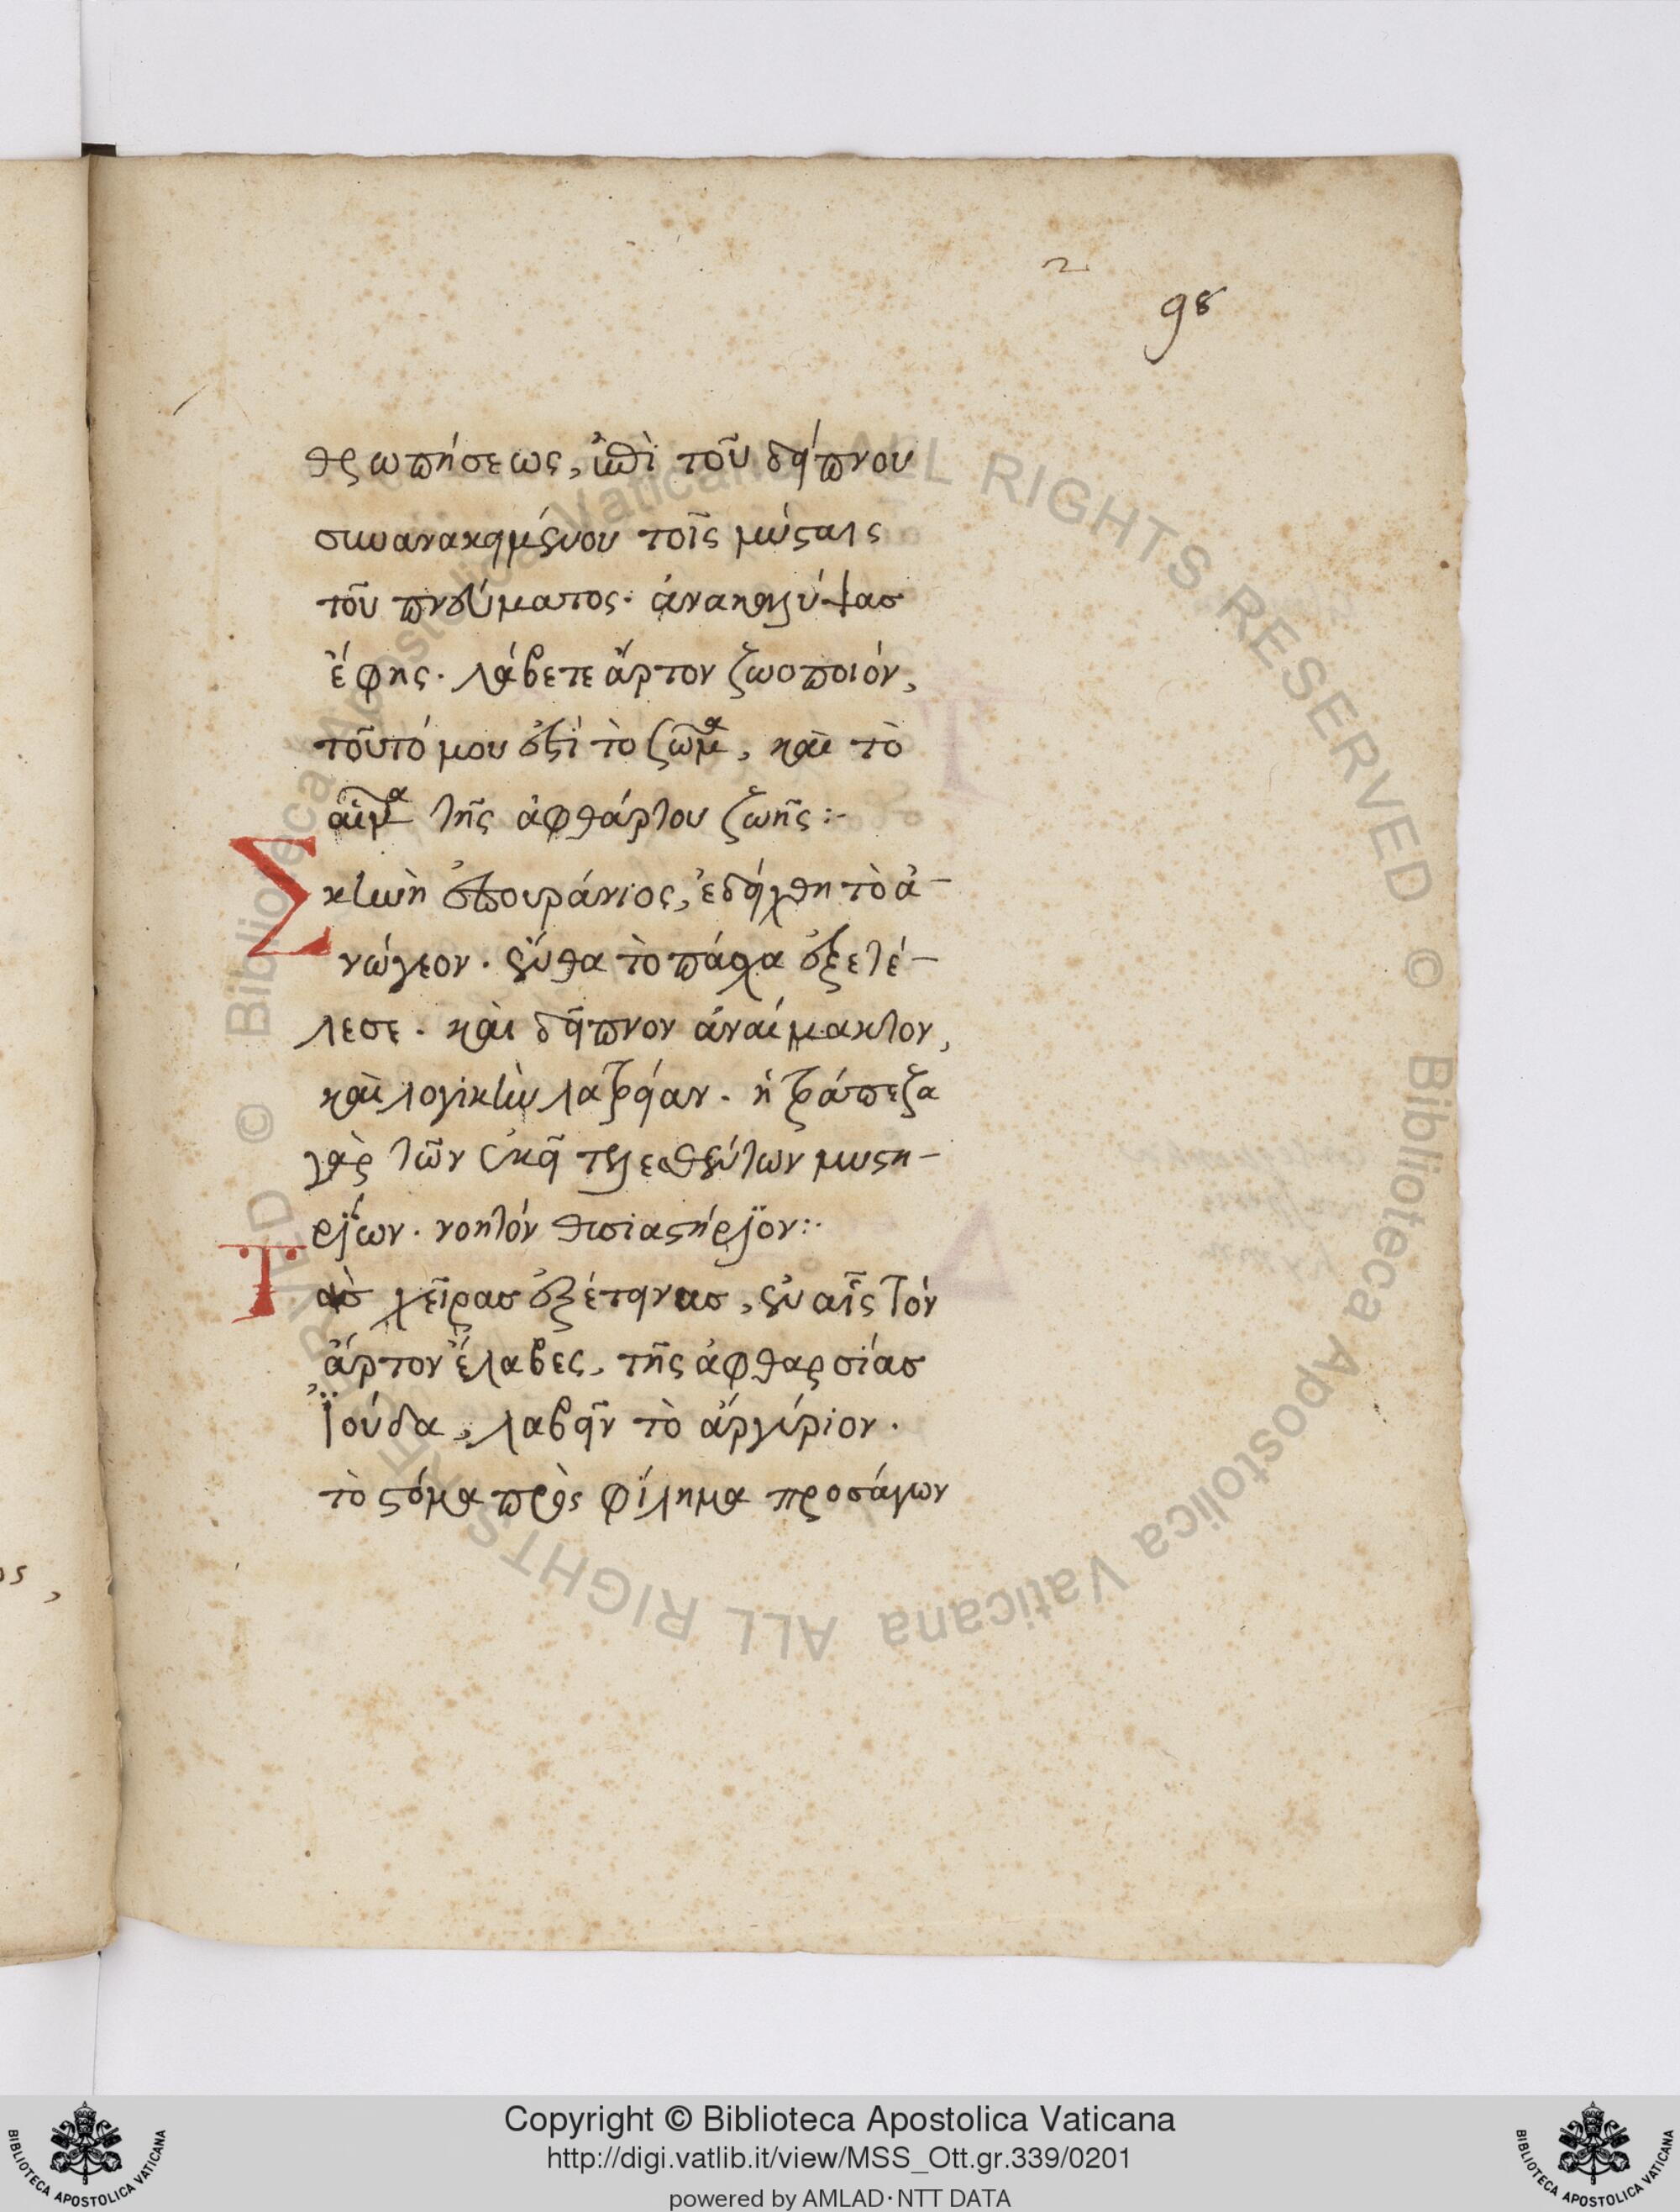 2
98
θρωπήσεως, ἐπὶ τοῦ δείπνου
συνανακειμένου τοῖς μύσταις
τοῦ πνεύματος. ἀνακαλύψασ
ἔφης. λάβετε ἄρτον ζωοποιόν,
τοῦτό μου ἐστὶ τὸ ζῶμα, καὶ τὸ
αἷμα τῆς ἀφθάρτου ζωῆς:-
Σκηνὴ ἐπουράνιος, ἐδείχθη τὸ ἀ-
νώγεον. ἔνθα τὸ πάσχα ἐξετέ-
λεσε. καὶ δεῖπνον ἀναίμακτον,
καὶ λογικὴν λατρείαν. ἡ τράπεζα
γὰρ τῶν ἐκεῖ τελεσθέντων μυστη-
ρίων. νοητόν θυσιαστήριον:·
Τὰσ χεῖρασ ἐξέτεινασ, ἐν αἷς τὸν
ἄρτον ἔλαβες, τῆς ἀφθαρσίασ
Ἰούδα, λαβεῖν τὸ ἀργύριον.
τὸ στόμα πρὸς φίλημα προσάγων
ος,
© Biblioteca Apostolica Vaticana ALL RIGHTS RESERVED © Biblioteca Apostolica Vaticana ALL RIGHTS RESERVED
Copyright © Biblioteca Apostolica Vaticana
http://digi.vatlib.it/view/MSS_Ott.gr.339/0201
powered by AMLAD·NTT DATA
BIBLIOTECA APOSTOLICA VATICANA
BIBLIOTECA APOSTOLICA VATICANA